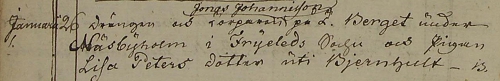 Jonas Johannisson
Januarii 26 Drängen och corporal på L. Berget under
1. Näsbyholm i Fryeleds Sochn och Pigan
Lisa Peters dotter uti Bjernhult — 13